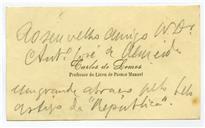 Ao seu velho amigo Sr. Dr.
Antº José de Almeida
Carlos de Lemos
Professor do Liceu de Passos Manuel
um grande abraço pelo belo
artigo da "Republica".